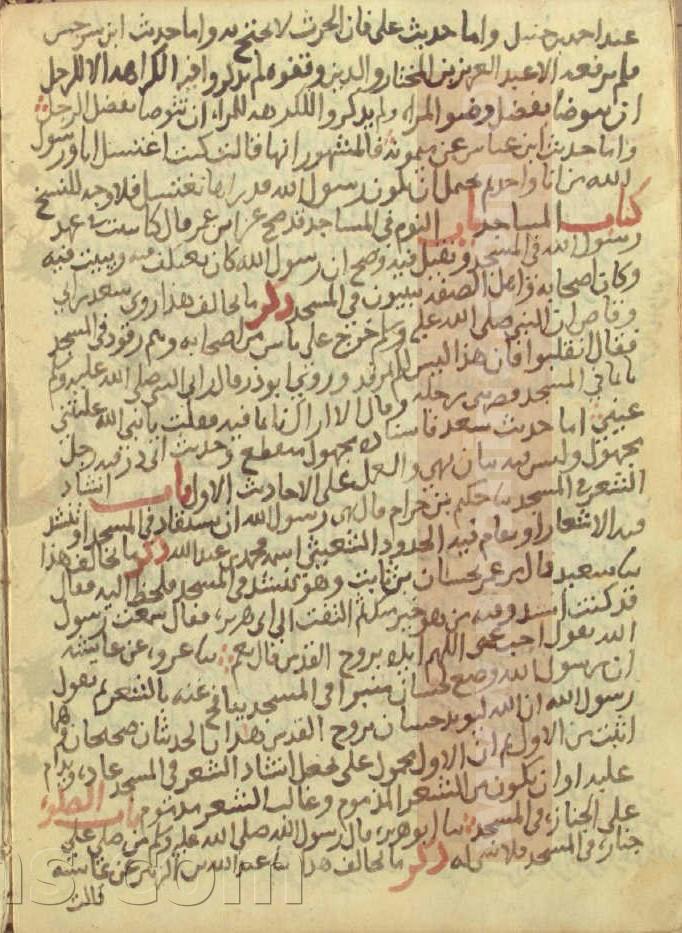 عند احمد بن حنبل واما حديث علي فان الحرث لا يحتج به واما حديث ابن سرجس
فلم يرفعه الا عبد العزيز بن المختار والذين وقفوه لم يذكروا فيه الكراهة الا للرجل
ان يتوضا بفضل وضو المراة ولم يذكروا الكراهة للمراة ان تتوضا بفضل الرجل
واما حديث ابن عباس عن ميمونة فالمشهور انها قالت كنت اغتسل انا ورسول
الله من انا واحد ثم يحتمل ان يكون رسول الله قد راها تغتسل فلا وجه للنسخ
كتاب المساجد باب النوم في المساجد قد صح عن ابن عمر قال كنا نبيت على عهد
رسول الله في المسجد ونقيل فيه وصح ان رسول الله كان يعتكف فيه ويبيت فيه
وكان اصحابه واهل الصفة يبيتون في المسجد ذكر ما يخالف هذا روى سعد بن ابي
وقاص ان النبي صلى الله عليه وسلم خرج على ناس من اصحابه وهم رقود في المسجد
فقال انقلبوا فان هذا ليس لكم مرقد وروى ابو ذر قال اتاني النبي صلى الله عليه وسلم
نائما في المسجد فضربني برجله وقال الا اراك نائما فيه فقلت يا نبي الله غلبتني
عيني اما حديث سعد فاسناده مجهول منقطع وحديث ابي ذر فيه رجل
مجهول وليس فيه بيان نهي والعمل على الاحاديث الاول باب انشاد
الشعر في المسجد حكيم بن حزام قال نهى رسول الله ان يستقاد في المسجد او تنشد
فيه الاشعار او يقام فيه الحدود الشعيثي اسمه محمد بن عبد الله ذكر ما يخالف هذا
سعيد قال مر عمر بحسان بن ثابت وهو ينشد في المسجد فلحظ اليه فقال
قد كنت انشد وفيه من هو خير منك ثم التفت الى ابي هريرة فقال سمعت رسول
الله يقول اجب عني اللهم ايده بروح القدس قال نعم عروة عن عايشة
ان رسول الله وضع لحسان منبرا في المسجد ينافح عنه بالشعر ثم يقول
رسول الله ان الله ليويد حسان بروح القدس هذان الحديثان صحيحان وهما
اثبت من الاول ثم ان الاول محمول على جعل انشاد الشعر في المسجد عادة ويدام
عليه او ان يكون من الشعر المذموم وغالب الشعر مذموم باب الصلوة
على الجنازة في المسجد ابو هريرة قال رسول الله صلى الله عليه وسلم من صلى على
جنازة في المسجد فلا شي له ذكر ما يخالف هذا عبد الله بن الزبير عن عايشة
قالت